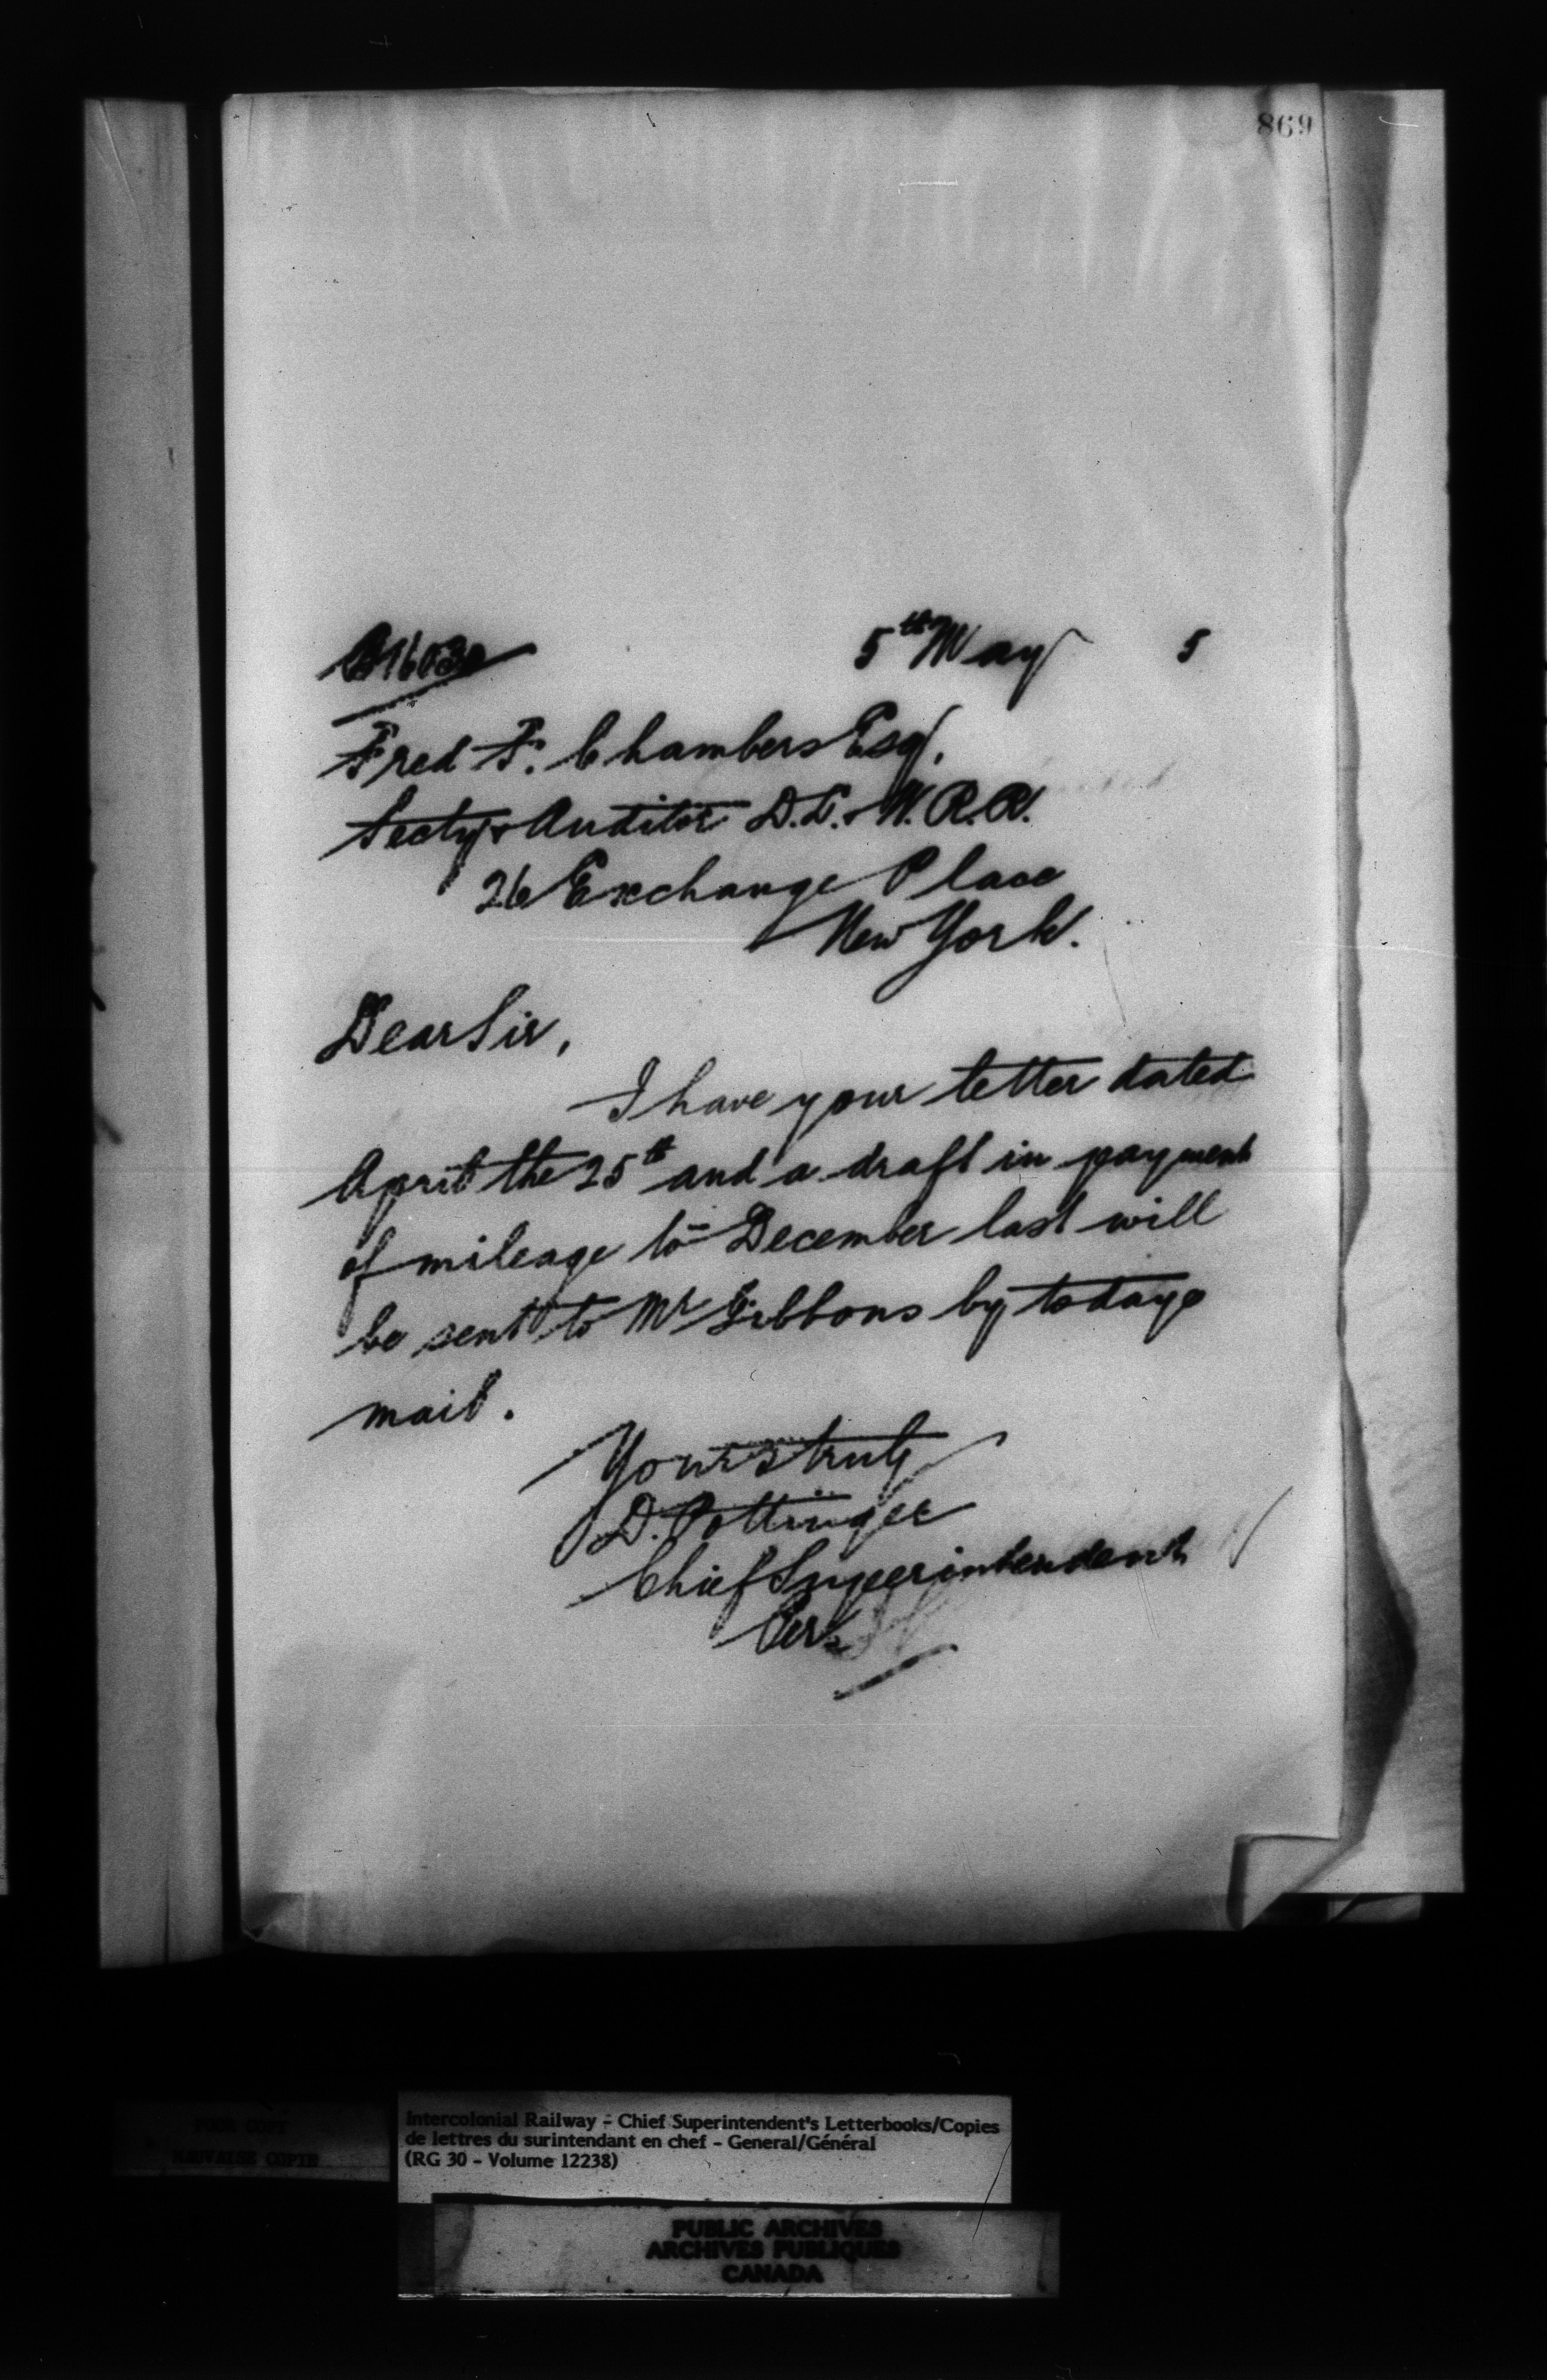 869
5th May 5
Fred F. Chambers Esq.
Secty & Auditor D.L. & W. R.R.
26 Exchange Place
New York.
Dear Sir,
I have your letter dated
April the 25th and a draft in payment
of mileage to December last will
be sent to Mr Gibbons by todays
mail.
Yours truly
D. Pottinger
Chief Superintendent
Per
POOR COPY
MAUVAISE COPIE
Intercolonial Railway - Chief Superintendent's Letterbooks/Copies
de lettres du surintendant en chef - General/Général
(RG 30 - Volume 12238)
PUBLIC ARCHIVES
ARCHIVES PUBLIQUES
CANADA